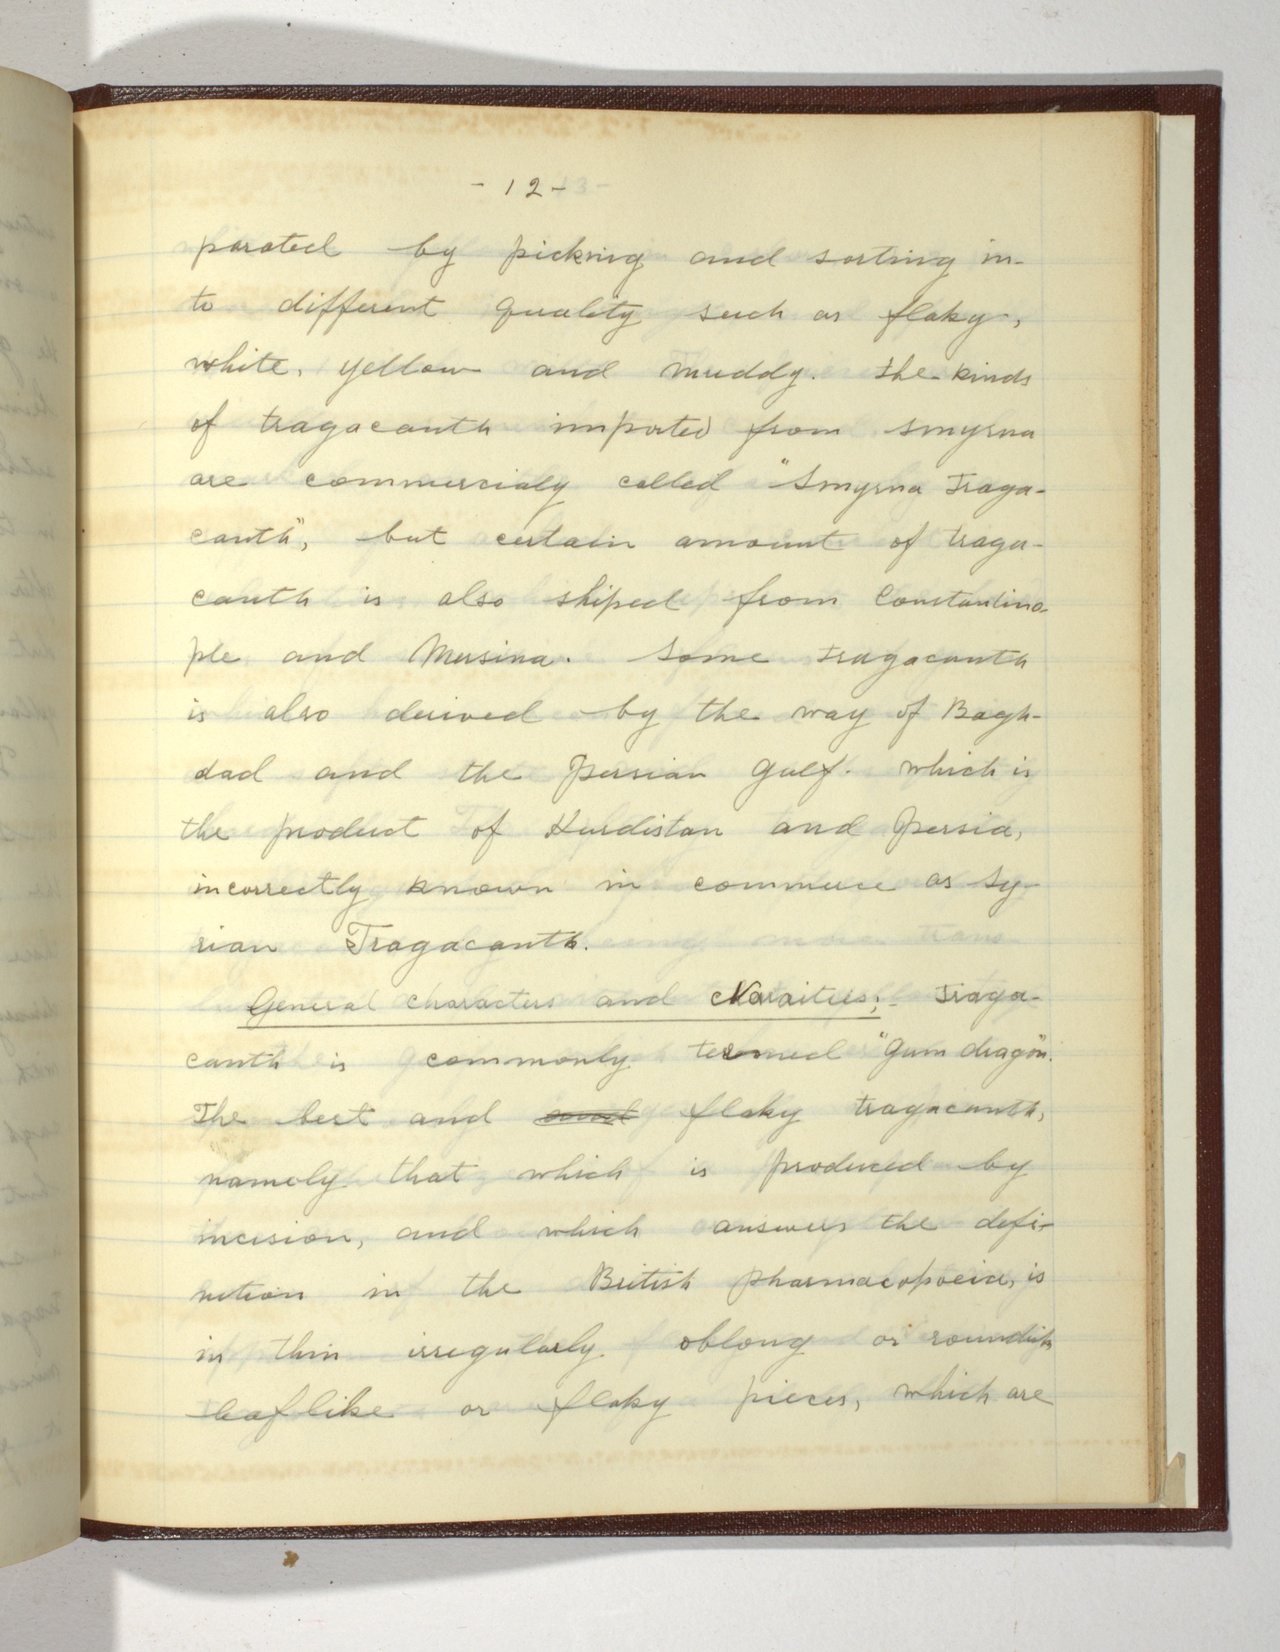 - 12 -
parated by picking and sorting in-
to different quality such as flaky,
white, yellow and muddy. The kinds
of tragacanth imported from Smyrna
are commercialy called "Smyrna Traga-
canth", but certain amount of traga-
canth is also shiped from Constantino-
ple and Mersina. Some tragacanth
is also derived by the way of Bagh-
dad and the Persian Gulf. which is
the product of Kurdistan and Persia,
incorrectly known in commerce as Sy-
rian Tragacanth.
General characters and Varaities;- Traga-
canth is commonly termed "Gum dragon".
The best and flaky tragacanth,
namely that which is produced by
incision, and which answers the defi-
nition in the British Pharmacopoeia, is
in thin irregularly oblong or roundish
leaflike or flaky pieces, which are